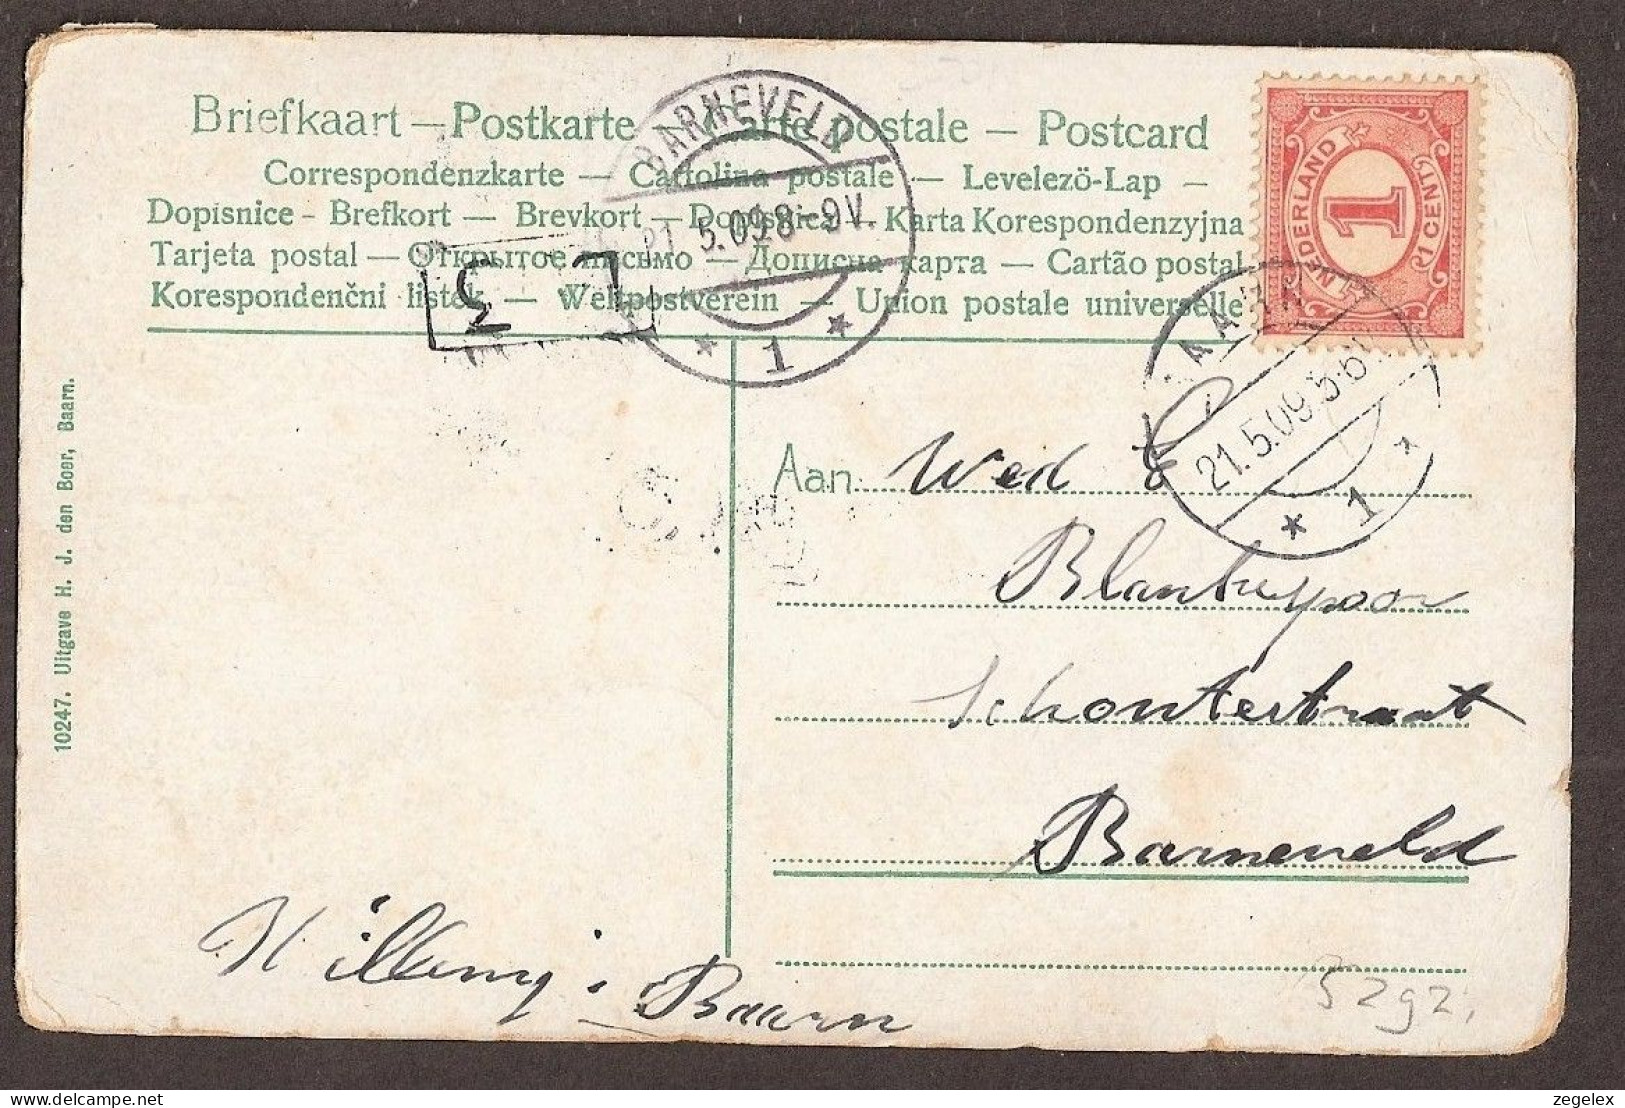 Briefkaart — Postkarte — Carte postale — Postcard
Correspondenzkarte — Cartolina postale — Levelező-Lap —
Dopisnice - Brefkort — Brevkort — Dopisnica — Karta Korespondenzyjna
Tarjeta postal — Открытое письмо — Дописна карта — Cartão postal
Korespondenční listek — Weltpostverein — Union postale universelle
BARNEVELD
21.5.09 8-9V.
* 1 *
NEDERLAND
1
1 CENT
BAARN
21.5.09 5-6
* 1 *
10247. Uitgave H. J. den Boer, Baarn.
Aan Wed
Schoutestraat
Barneveld
Baarn
zegelex